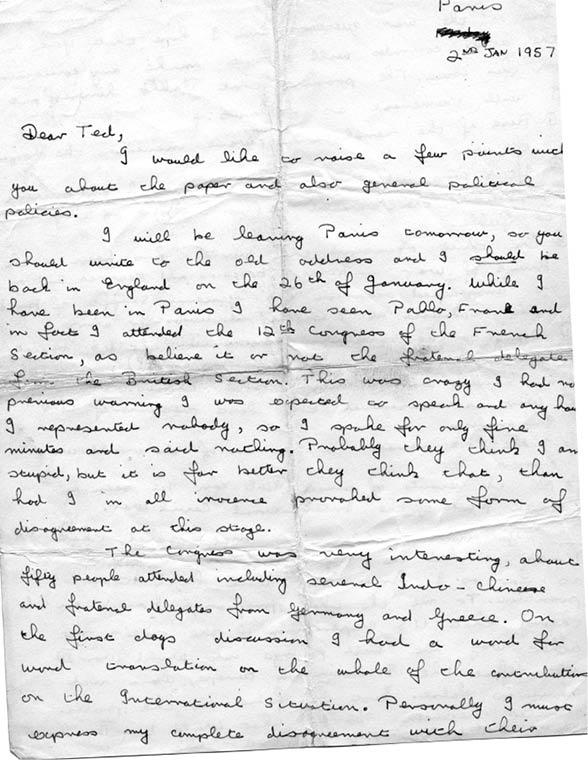 Paris
2ND JAN 1957
Dear Ted,
I would like to raise a few points with
you about the paper and also general political
policies.
I will be leaving Paris tomorrow, so you
should write to the old address and I should be
back in England on the 26th of January. While I
have been in Paris I have seen Pablo, Frank and
in fact I attended the 12th Congress of the French
Section, as believe it or not the fraternal delegate
from the British Section. This was crazy I had no
previous warning I was expected to speak and any how
I represented nobody, so I spoke for only five
minutes and said nothing. Probably they think I am
stupid, but it is far better they think that, than
had I in all inocence provoked some form of
disagreement at this stage.
The Congress was very interesting, about
fifty people attended including several Indo-Chinese
and fraternal delegates from Germany and Greece. On
the first days discussion I had a word for
word translation on the whole of the contribution
on the International Situation. Personally I must
express my complete disagreement with their